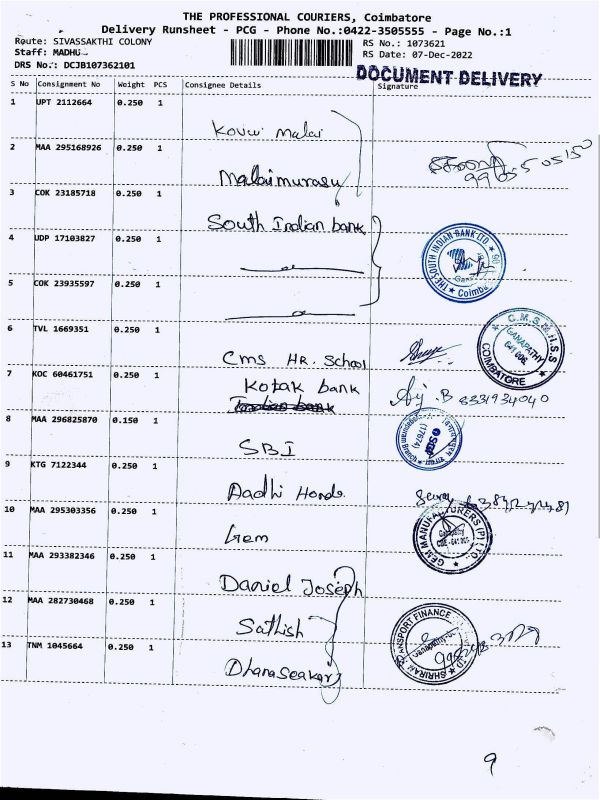 THE PROFESSIONAL COURIERS, Coimbatore
Delivery Runsheet - PCG - Phone No.:0422-3505555 - Page No.:1
Route: SIVASSAKTHI COLONY
Staff: MADHU
DRS No.: DCJB107362101
RS No.: 1073621
RS Date: 07-Dec-2022
DOCUMENT DELIVERY
S No Consignment No Weight PCS Consignee Details Signature
1 UPT 2112664 0.250 1
Kovai Malai
2 MAA 295168926 0.250 1
Malaimurasu
3 COK 23185718 0.250 1
South Indian bank
4 UDP 17103827 0.250 1
THE SOUTH INDIAN BANK LTD
Coimba
5 COK 23935597 0.250 1
6 TVL 1669351 0.250 1
Cms HR. School
C.M.S.M.H.S.S
GANAPATHY
641 006
COIMBATORE
7 KOC 60461751 0.250 1
Kotak bank
Indian bank
8331934040
8 MAA 296825870 0.150 1
SBI
9 KTG 7122344 0.250 1
Aadhi Honda
10 MAA 295303356 0.250 1
Gem
GEM MANUFACTURERS (P) LTD.
11 MAA 293382346 0.250 1
Daniel Joseph
12 MAA 282730468 0.250 1
Sathish
13 TNM 1045664 0.250 1
Dhanaseakar
SHRIRAM TRANSPORT FINANCE
9